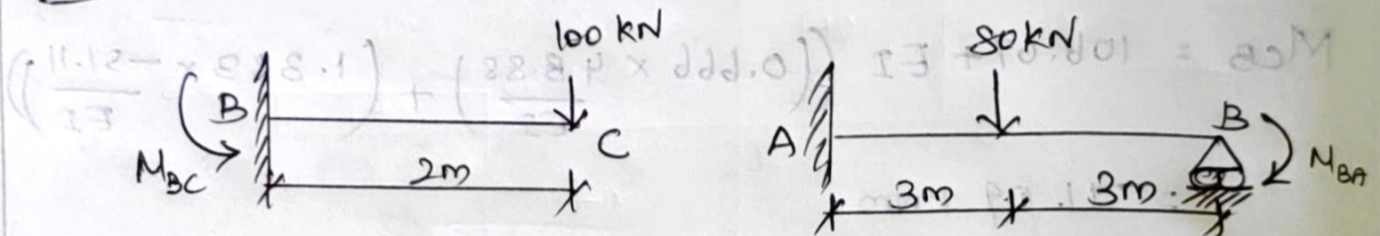 100 kN
B
C
M_BC
2m
80kN
A
B
M_BA
3m
3m